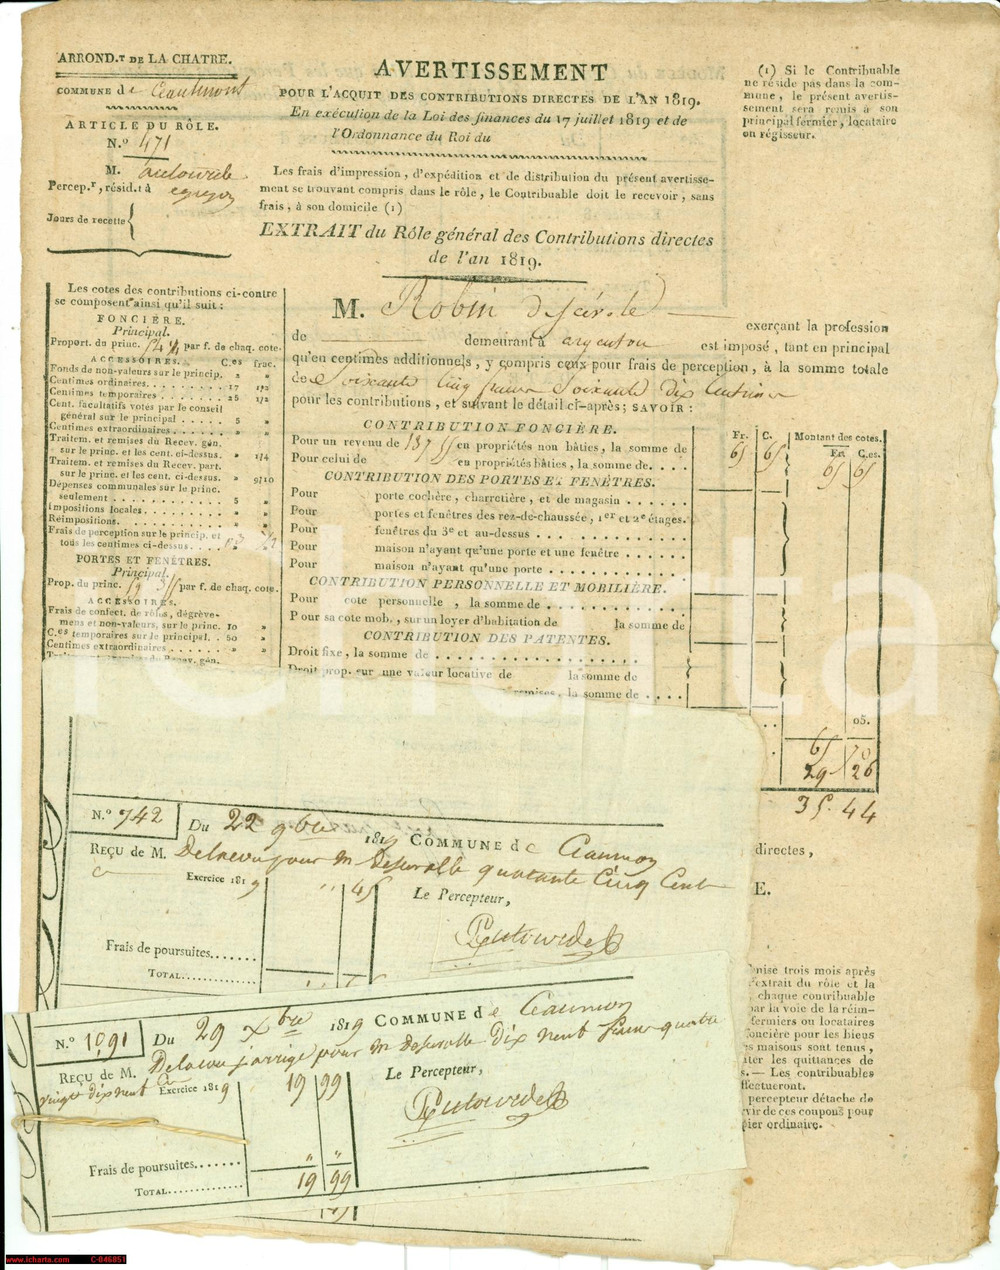 ARROND.T DE LA CHATRE.
COMMUNE de
ARTICLE DU RÔLE.
N.o 471
M.
Percep.r, résid.t à
Jours de recette
AVERTISSEMENT
POUR L'ACQUIT DES CONTRIBUTIONS DIRECTES DE L'AN 1819.
En exécution de la Loi des finances du 17 juillet 1819 et de
l'Ordonnance du Roi du
Les frais d'impression, d'expédition et de distribution du présent avertisse-
ment se trouvant compris dans le rôle, le Contribuable doit le recevoir, sans
frais, à son domicile (1)
EXTRAIT du Rôle général des Contributions directes
de l'an 1819.
(1) Si le Contribuable
ne réside pas dans la com-
mune, le présent avertis-
sement sera remis à son
principal fermier, locataire
ou régisseur.
Les cotes des contributions ci-contre
se composent ainsi qu'il suit :
FONCIÈRE.
Principal.
Proport. du princ. par f. de chaq. cote.
ACCESSOIRES. C.es frac.
Fonds de non-valeurs sur le princip. 2 "
Centimes ordinaires. . . . . . . . 17 1/2
Centimes temporaires . . . . . . . 25 1/2
Cent. facultatifs votés par le conseil
général sur le principal . . . . . 5 "
Centimes extraordinaires . . . . . " "
Traitem. et remises du Recev. gén.
sur le princ. et les cent. ci-dessus. " 1/4
Traitem. et remises du Recev. part.
sur le princ. et les cent. ci-dessus. " 9/10
Dépenses communales sur le princ.
seulement . . . . . . . . . . 5 "
Impositions locales . . . . . . . " "
Réimpositions. . . . . . . . . . " "
Frais de perception sur le princip. et
tous les centimes ci-dessus. . . .
PORTES ET FENÊTRES.
Principal.
Prop. du princ. par f. de chaq. cote.
ACCESSOIRES.
Frais de confect. de rôles, dégrève-
mens et non-valeurs, sur le princ. 10 "
C.es temporaires sur le principal. . 50 "
Centimes extraordinaires . . . . . " "
M. Robin
exerçant la profession
de demeurant à argenton est imposé, tant en principal
qu'en centimes additionnels, y compris ceux pour frais de perception, à la somme totale
de Soixante Cinq francs Soixante dix Centimes
pour les contributions, et suivant le détail ci-après; SAVOIR :
CONTRIBUTION FONCIÈRE.
Pour un revenu de en propriétés non bâties, la somme de
Pour celui de en propriétés bâties, la somme de. . . .
CONTRIBUTION DES PORTES ET FENÊTRES.
Pour porte cochère, charretière, et de magasin . . . . .
Pour portes et fenêtres des rez-de-chaussée, 1er et 2e étages.
Pour fenêtres du 3e et au-dessus . . . . . . . .
Pour maison n'ayant qu'une porte et une fenêtre . . . . .
Pour maison n'ayant qu'une porte . . . . . . . . . .
CONTRIBUTION PERSONNELLE ET MOBILIÈRE.
Pour cote personnelle, la somme de . . . . . . . . . .
Pour sa cote mob., sur un loyer d'habitation de la somme de
CONTRIBUTION DES PATENTES.
Droit fixe, la somme de . . . . . . . . . . . . . .
Droit prop. sur une valeur locative de la somme de
remises, la somme de . . . .
Fr. C. Montant des cotes.
Fr. C.es
65 65 65 65
05.
65 70
29 26
35. 44
directes,
E.
mise trois mois après
extrait du rôle et la
, chaque contribuable
par la voie de la réim-
fermiers ou locataires
foncière pour les biens
es maisons sont tenus,
ter les quittances de
s. — Les contribuables
ffectueront.
percepteur détache de
vir de ces coupons pour
pier ordinaire.
N.o 742 Du 22 9bre 1819 COMMUNE de
REÇU DE M. pour M quarante Cinq Cent
Exercice 1819 " 45 Le Percepteur,
Frais de poursuites.......
TOTAL............
N.o 1091 Du 29 Xbre 1819 COMMUNE de
REÇU DE M. pour M Dix neuf francs quatre
vingt dix neuf C Exercice 1819 19 99 Le Percepteur,
Frais de poursuites....... " "
TOTAL.............. 19 99
icharta
www.icharta.com C-046851